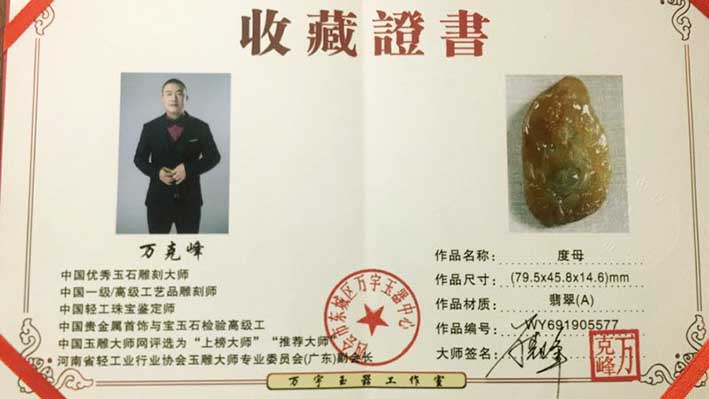 收藏證書
万克峰
中国优秀玉石雕刻大师
中国一级/高级工艺品雕刻师
中国轻工珠宝鉴定师
中国贵金属首饰与宝玉石检验高级工
中国玉雕大师网评选为“上榜大师”“推荐大师”
河南省轻工业行业协会玉雕大师专业委员会(广东)副会长
作品名称: 度母
作品尺寸: (79.5x45.8x14.6)mm
作品材质: 翡翠(A)
作品编号: WY691905577
大师签名:
万克峰
市东城区万字玉器中心
万字玉器工作室